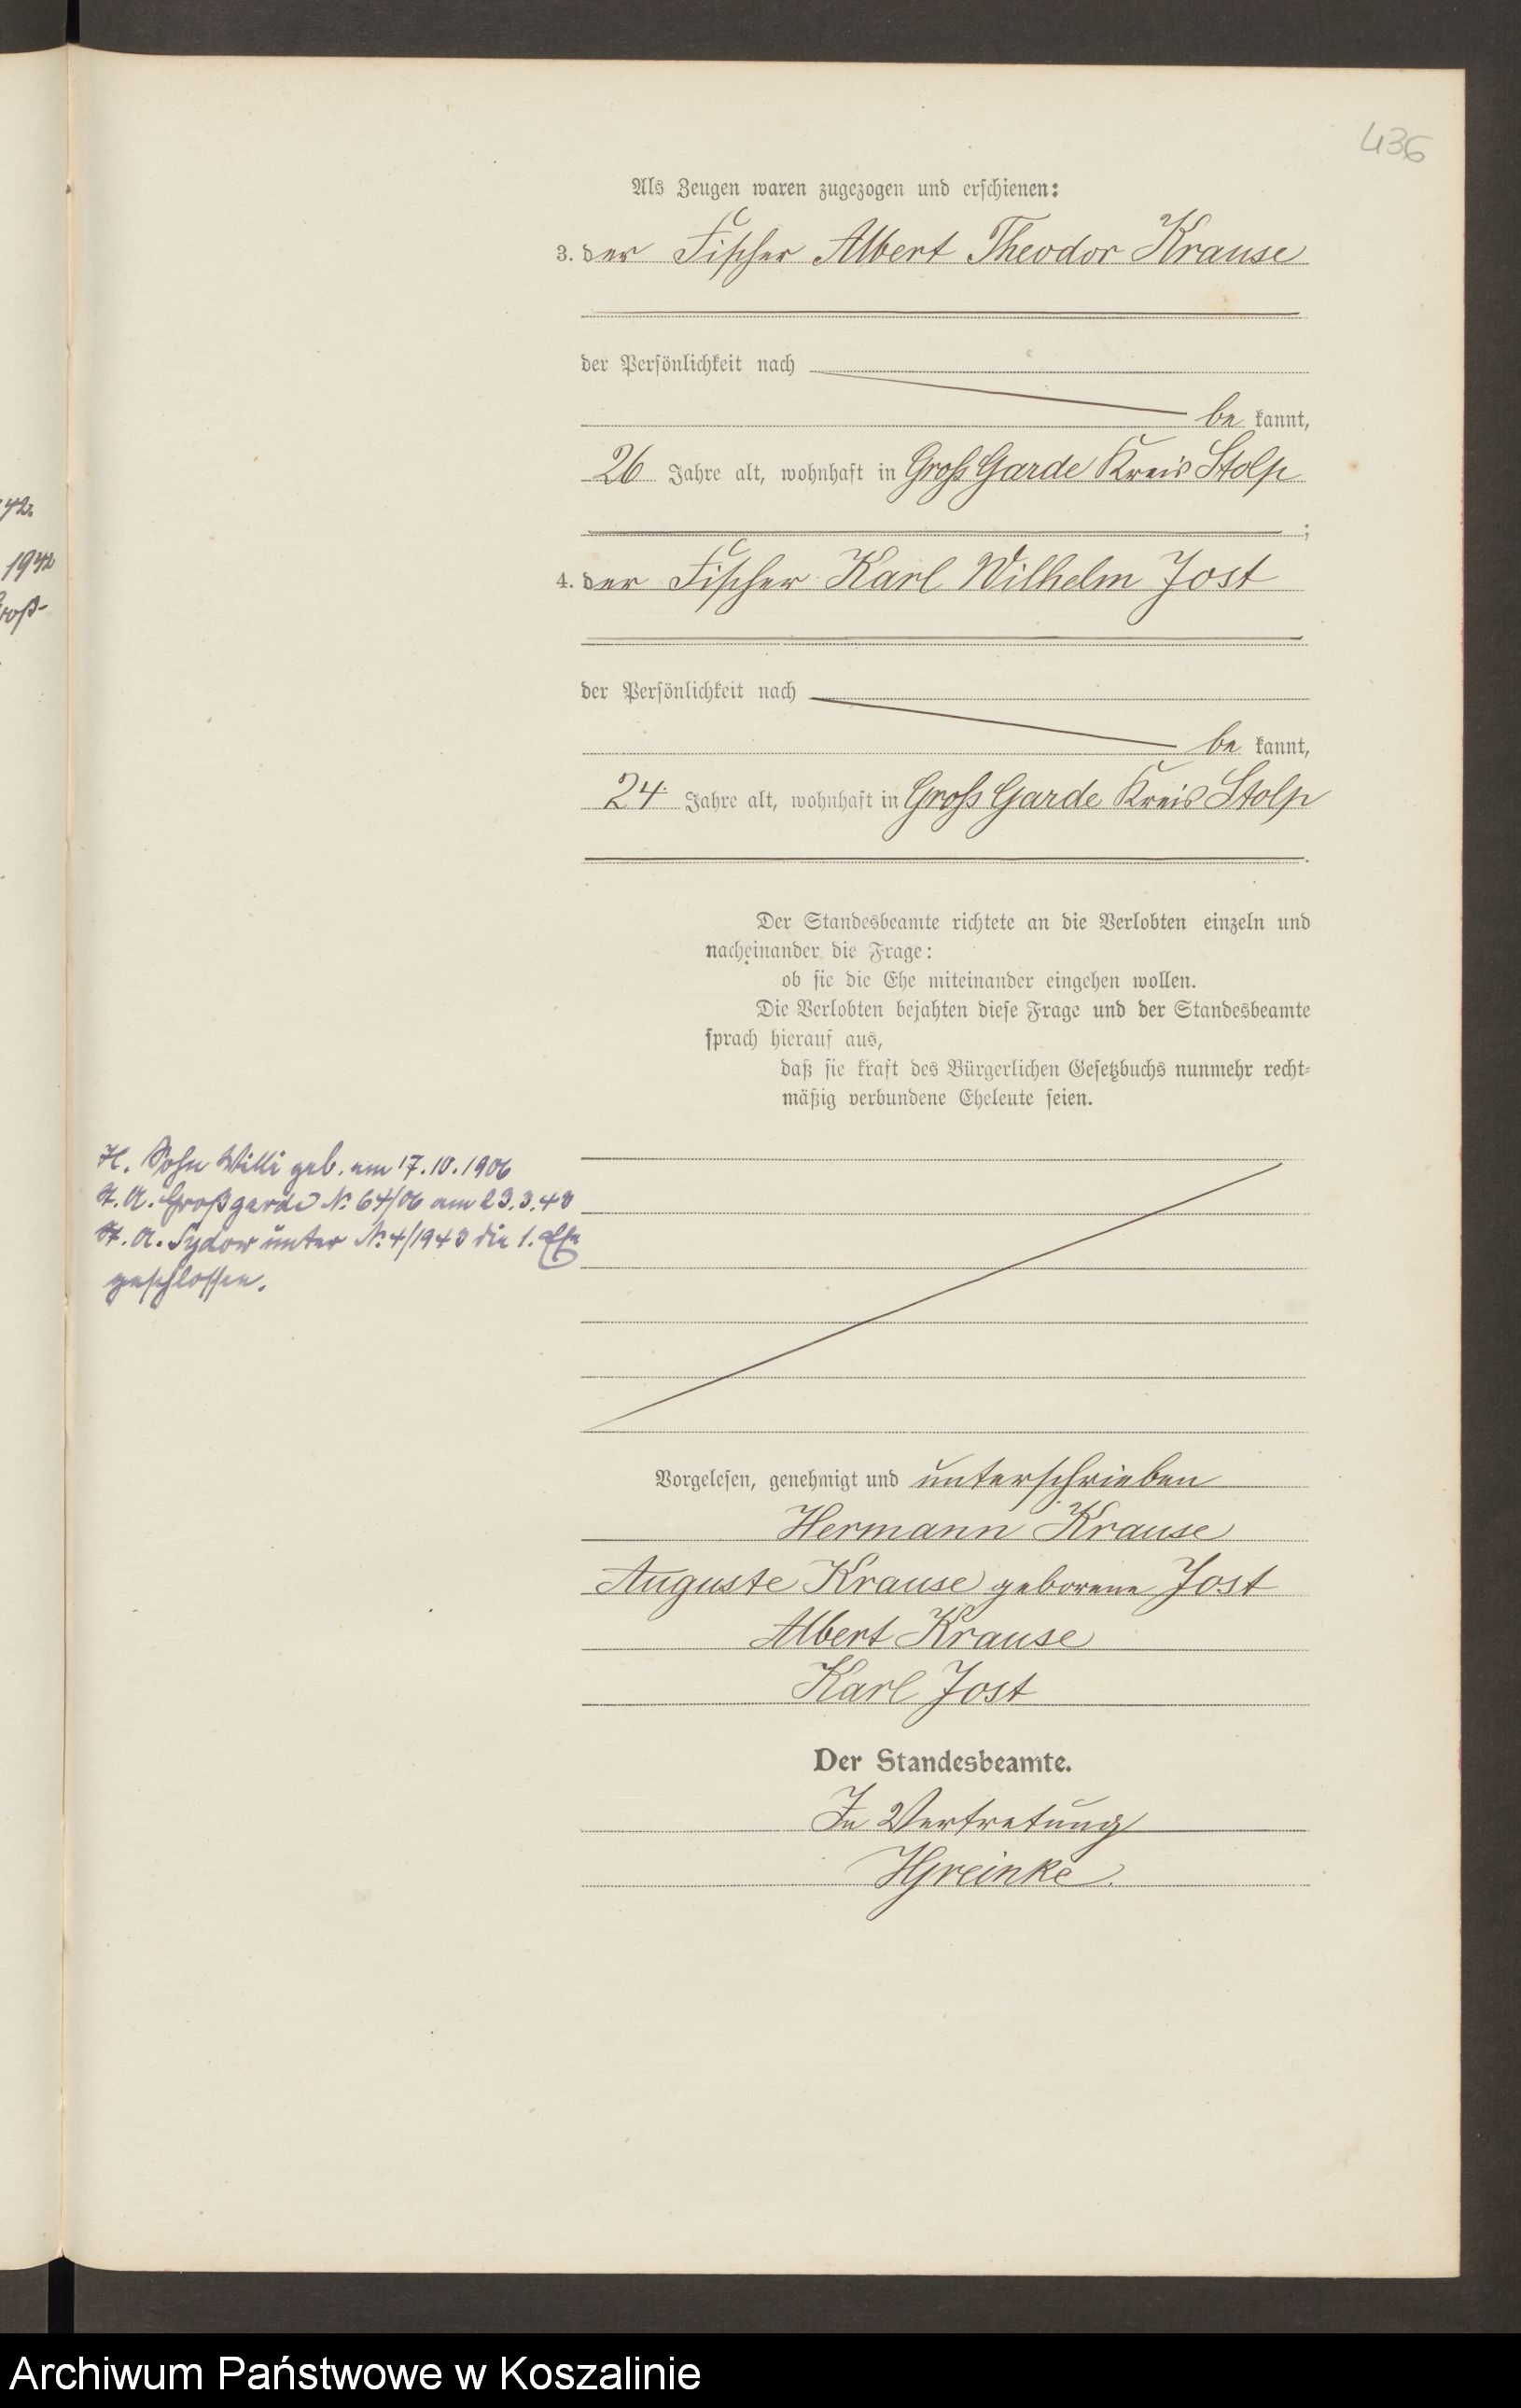 436
Als Zeugen waren zugezogen und erschienen:
3. der Fischer Albert Theodor Krause
der Persönlichkeit nach
be kannt,
26 Jahre alt, wohnhaft in Groß Garde Kreis Stolp
;
4. der Fischer Karl Wilhelm Jost
der Persönlichkeit nach
be kannt,
24 Jahre alt, wohnhaft in Groß Garde Kreis Stolp
.
Der Standesbeamte richtete an die Verlobten einzeln und
nacheinander die Frage:
ob sie die Ehe miteinander eingehen wollen.
Die Verlobten bejahten diese Frage und der Standesbeamte
sprach hierauf aus,
daß sie kraft des Bürgerlichen Gesetzbuchs nunmehr recht-
mäßig verbundene Eheleute seien.
H. Sohn Willi geb. am 17.10.1906
St. A. Großgarde No 64/06 am 23.3.43
St. A. Sydow unter No 4/1943 die 1. Ehe
geschlossen.
Vorgelesen, genehmigt und unterschrieben
Hermann Krause
Auguste Krause geborene Jost
Albert Krause
Karl Jost
Der Standesbeamte.
In Vertretung
HGreinke.
42.
1942
Groß-
Archiwum Państwowe w Koszalinie